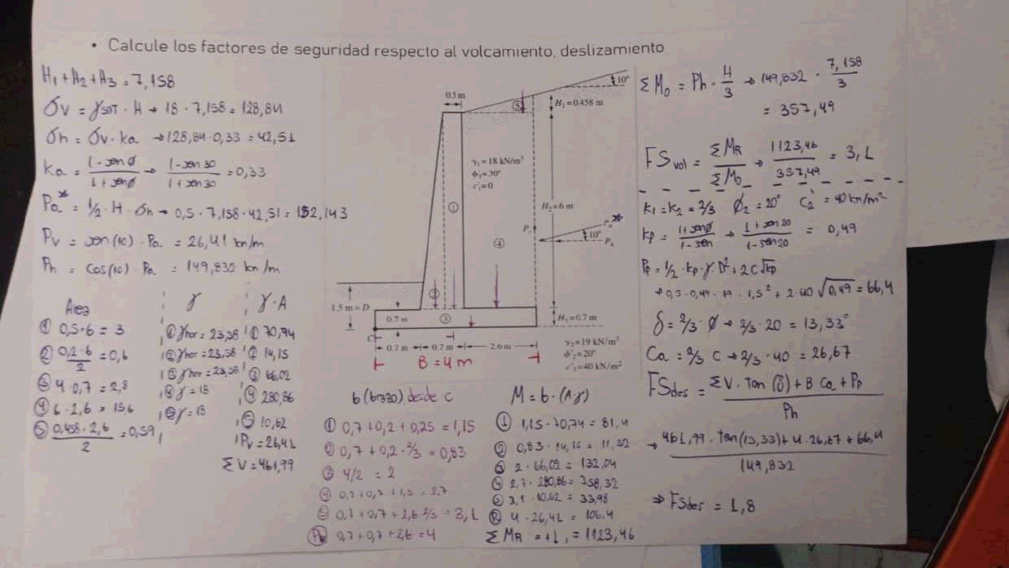 • Calcule los factores de seguridad respecto al volcamiento, deslizamiento
H₁ + H₂ + H₃ = 7,158
σv = γSOT · H → 18 · 7,158 = 128,84
σh = σv · ka → 128,84 · 0,33 = 42,51
ka = (1 - sen ø)/(1 + sen ø) → (1 - sen 30)/(1 + sen 30) = 0,33
Pa* = 1/2 · H · σh → 0,5 · 7,158 · 42,51 = 152,143
Pv = sen(10) · Pa = 26,41 kn/m
Ph = cos(10) · Pa = 149,832 kn/m
Area
① 0,5·6 = 3
② (0,2·6)/2 = 0,6
③ 4·0,7 = 2,8
④ 6·2,6 = 15,6
⑤ (0,458·2,6)/2 = 0,59
γ
① γhor = 23,58
② γhor = 23,58
③ γhor = 23,58
④ γ = 18
⑤ γ = 18
γ·A
① 70,74
② 14,15
③ 66,02
④ 280,86
⑤ 10,62
Pv = 26,41
ΣV = 461,99
0.5 m
10°
⑤
H₁=0.458 m
γ₁ = 18 kN/m³
ϕ'₁ = 30°
c'₁ = 0
①
H₂=6 m
④
10°
②
1.5 m = D
0.7 m
③
H₃=0.7 m
C
0.7 m
0.7 m
2.6 m
γ₂ = 19 kN/m³
ϕ'₂ = 20°
c'₂ = 40 kN/m²
B = 4 m
b (brazo) desde C
① 0,7 + 0,2 + 0,25 = 1,15
② 0,7 + 0,2·2/3 = 0,83
③ 4/2 = 2
④ 0,7 + 0,7 + 1,3 = 2,7
⑤ 0,7 + 0,7 + 2,6 2/3 = 3,1
Pv 0,7 + 0,7 + 2,6 = 4
M = b · (Aγ)
① 1,15 · 70,74 = 81,4
② 0,83 · 14,15 = 11,32
③ 2 · 66,02 = 132,04
④ 2,7 · 280,86 = 758,32
⑤ 3,1 · 10,62 = 33,98
4 · 26,41 = 106,4
Σ MR = = 1123,46
Σ Mo = Ph · H/3 → 149,832 · 7,158/3
= 357,49
FSvol = ΣMR/ΣMo → 1123,46/357,49 = 3,1
k₁ = k₂ = 2/3 ø₂ = 20° c₂' = 40 kn/m²
kp = (1 + sen ø)/(1 - sen → (1 + sen 20)/(1 - sen 20 = 0,49
Pp = 1/2 · kp · γ · D² + 2C√kp
→ 0,5 · 0,49 · 19 · 1,5² + 2·40 √0,49 = 66,4
δ = 2/3 · ø → 2/3 · 20 = 13,33°
Ca = 2/3 C → 2/3 · 40 = 26,67
FSdes = (ΣV · Tan(δ) + B Ca + Pp)/Ph
→ (461,99 · tan(13,33) + 4 · 26,67 + 66,4)/149,832
⇒ FSdes = 1,8